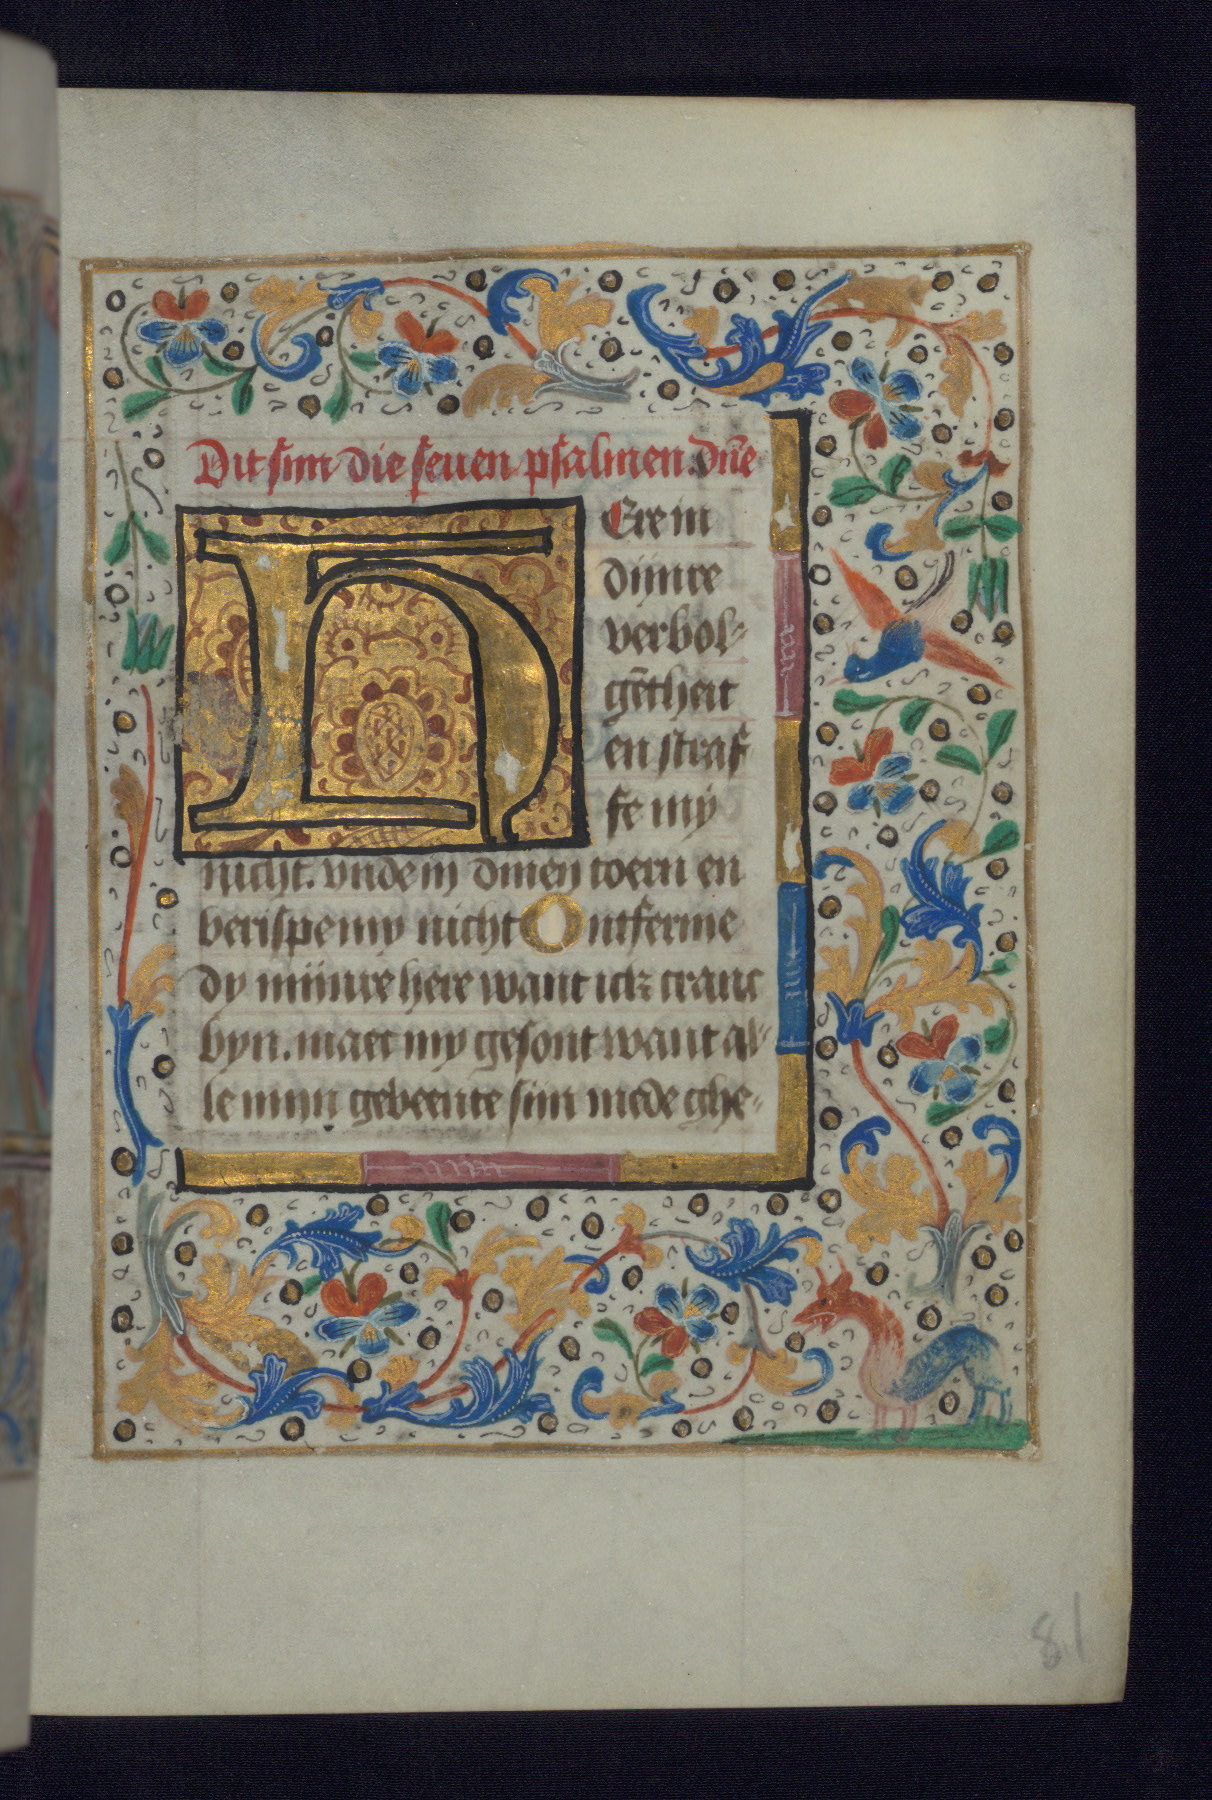 Dit sinn die seuen psalmen. dn̄e
H Ere in
dijnre
verbol-
gētheit
en straf
fe mÿ
nicht. vnde in dinen toern en
berispe my nicht Ontferme
dy mijnre here want ick cranc
byn. maet my gesont want al-
le minn gebeente sinn mede ghe-
81